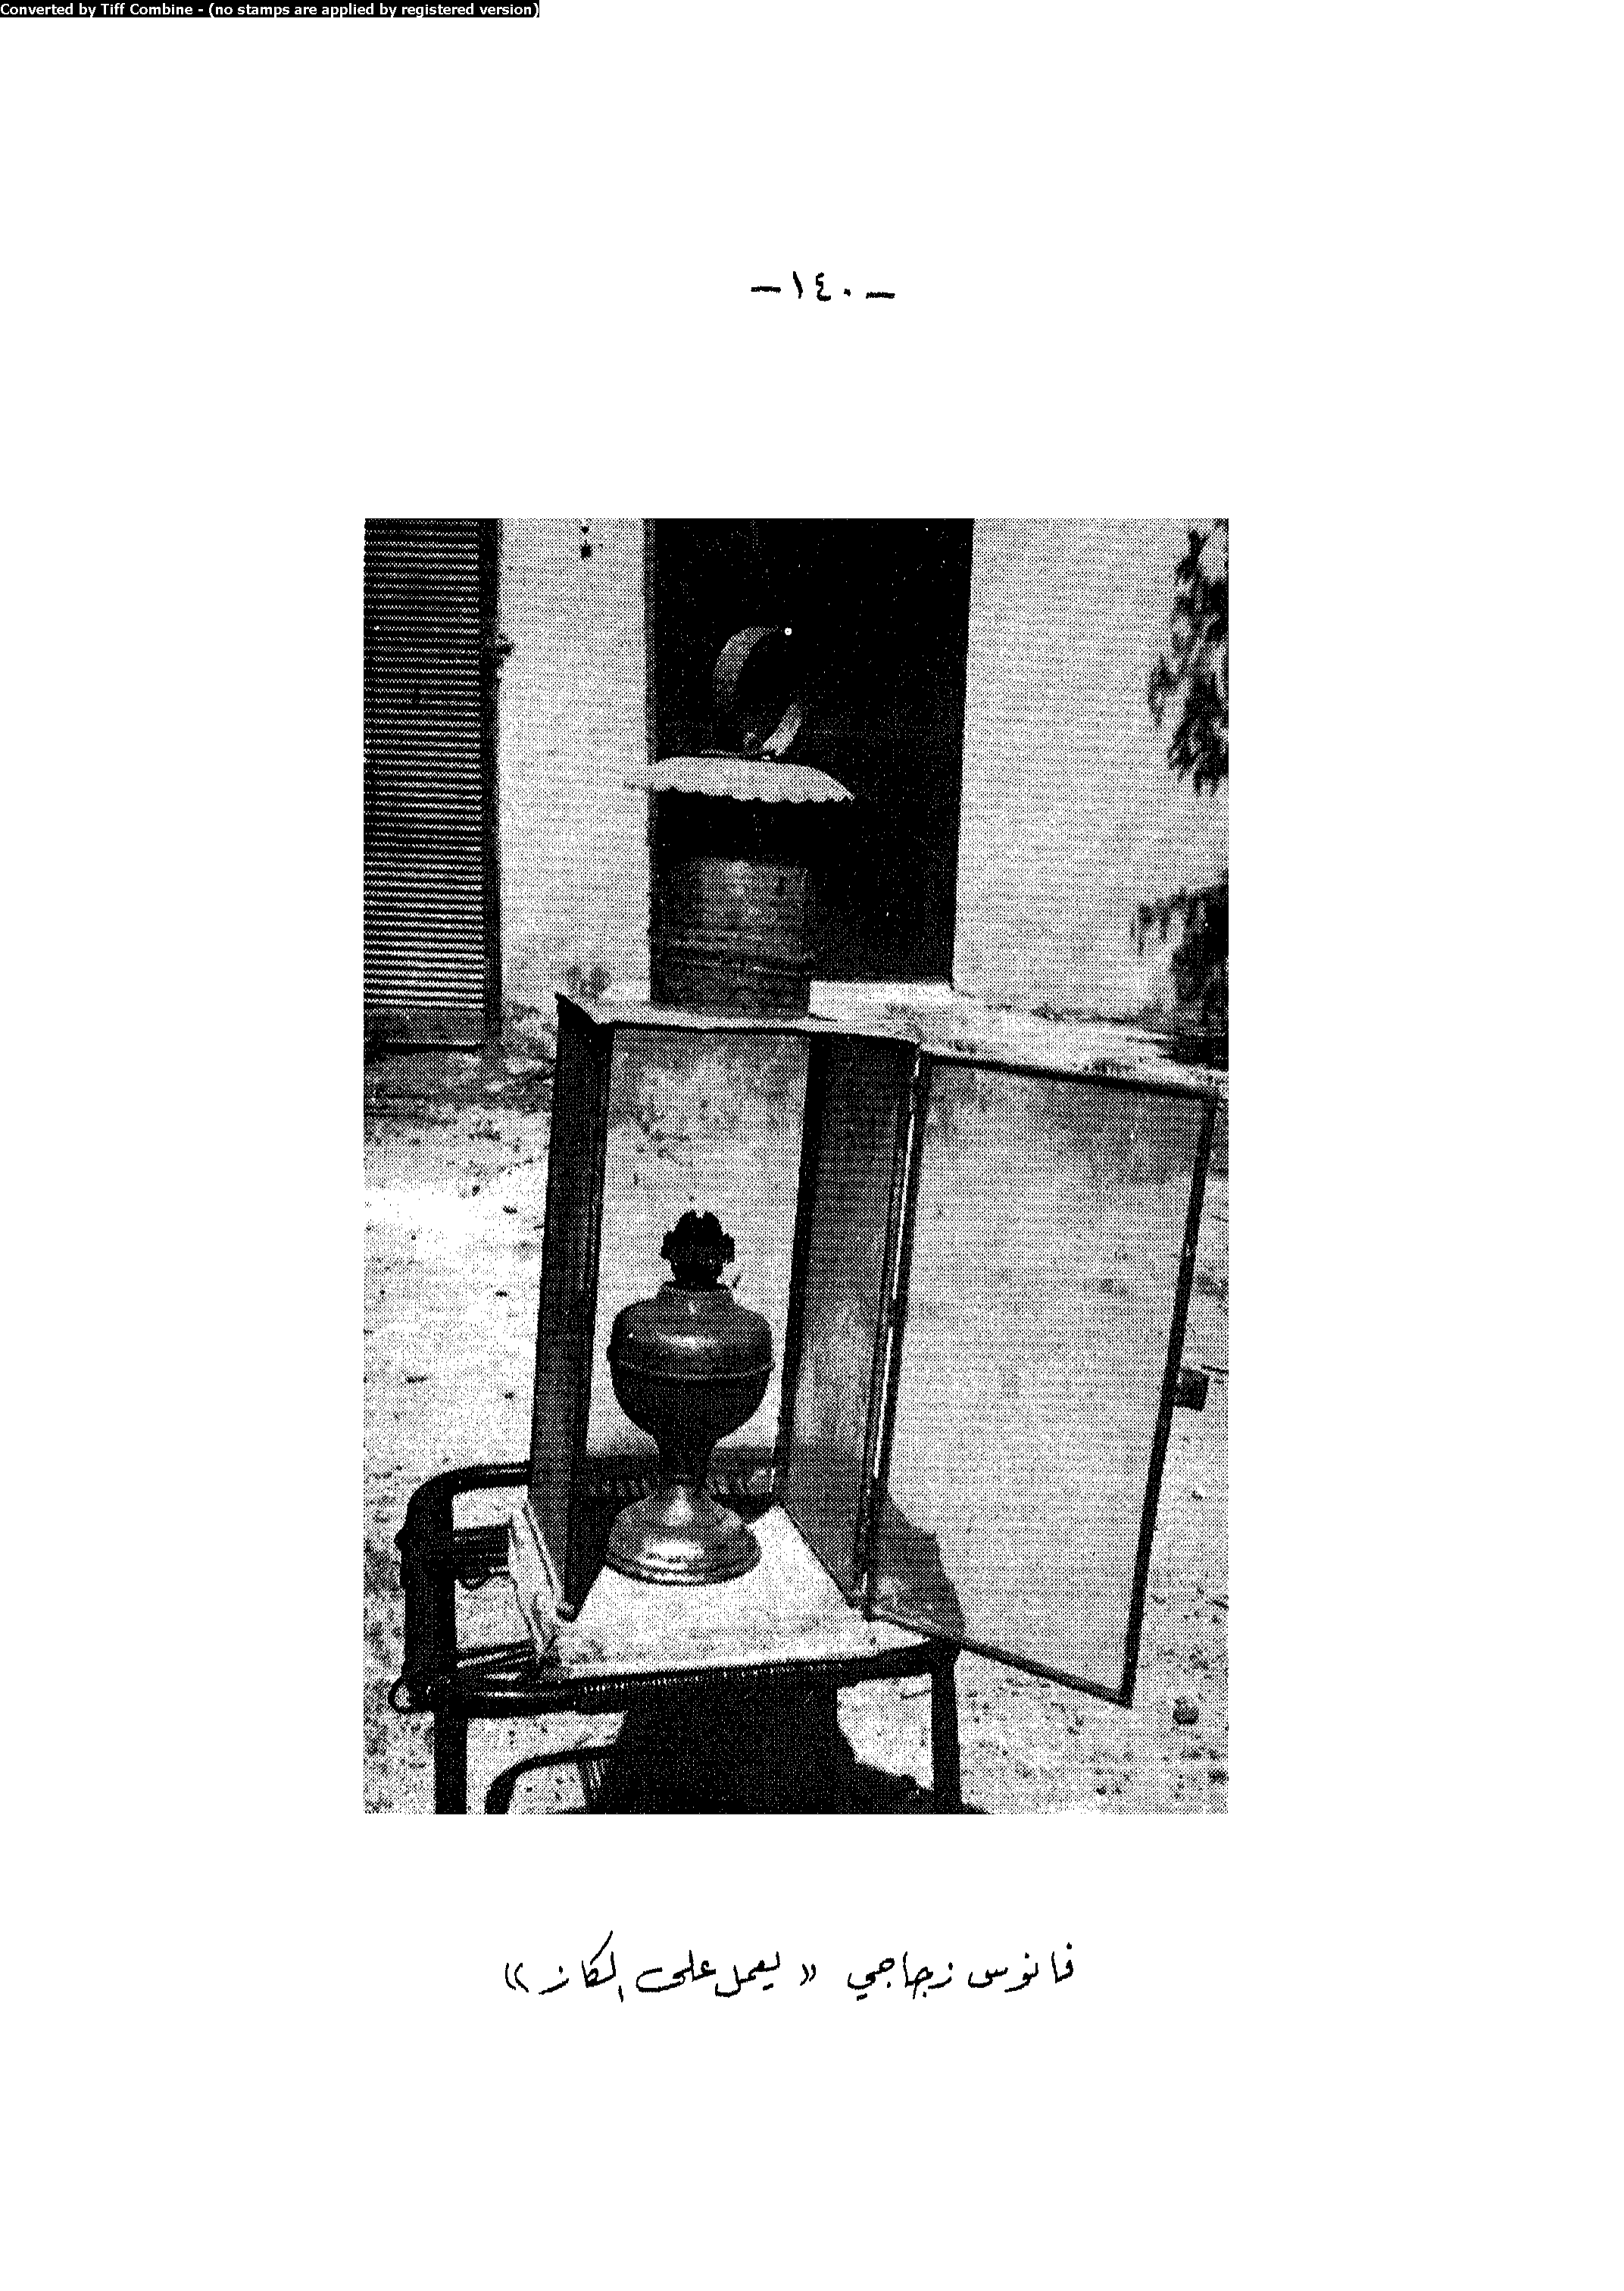 Converted by Tiff Combine - (no stamps are applied by registered version)
-١٤٠-
فانوس زجاجي « يعمل على الكاز »